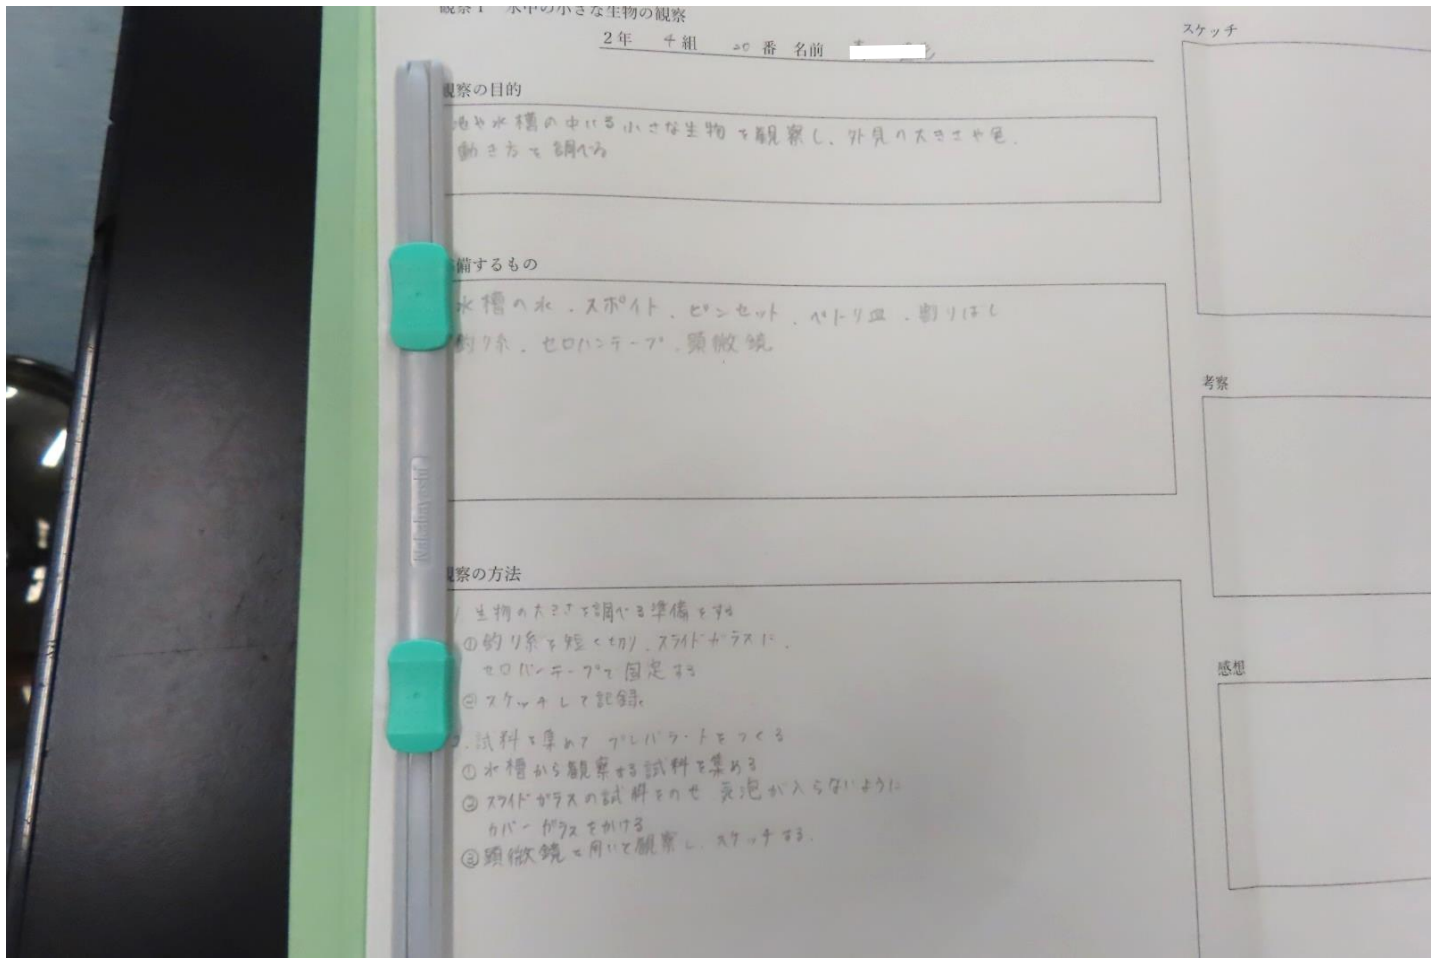 観察1 水中の小さな生物の観察
2年 4組 20番 名前
観察の目的
池や水槽の中にいる小さな生物を観察し、外見の大きさや色、
動き方を調べる
備するもの
水槽の水、スポイト、ピンセット、ペトリ皿、割りばし
釣り糸、セロハンテープ、顕微鏡
Nakabayashi
観察の方法
1 生物の大きさを調べる準備をする
①釣り糸を短く切り、スライドガラスに、
セロハンテープで固定する
②スケッチして記録。
2.試料を集めてプレパラートをつくる
①水槽から観察する試料を集める
②スライドガラスの試料をのせ気泡が入らないように
カバーガラスをかける
③顕微鏡を用いて観察し、スケッチする。
スケッチ
考察
感想